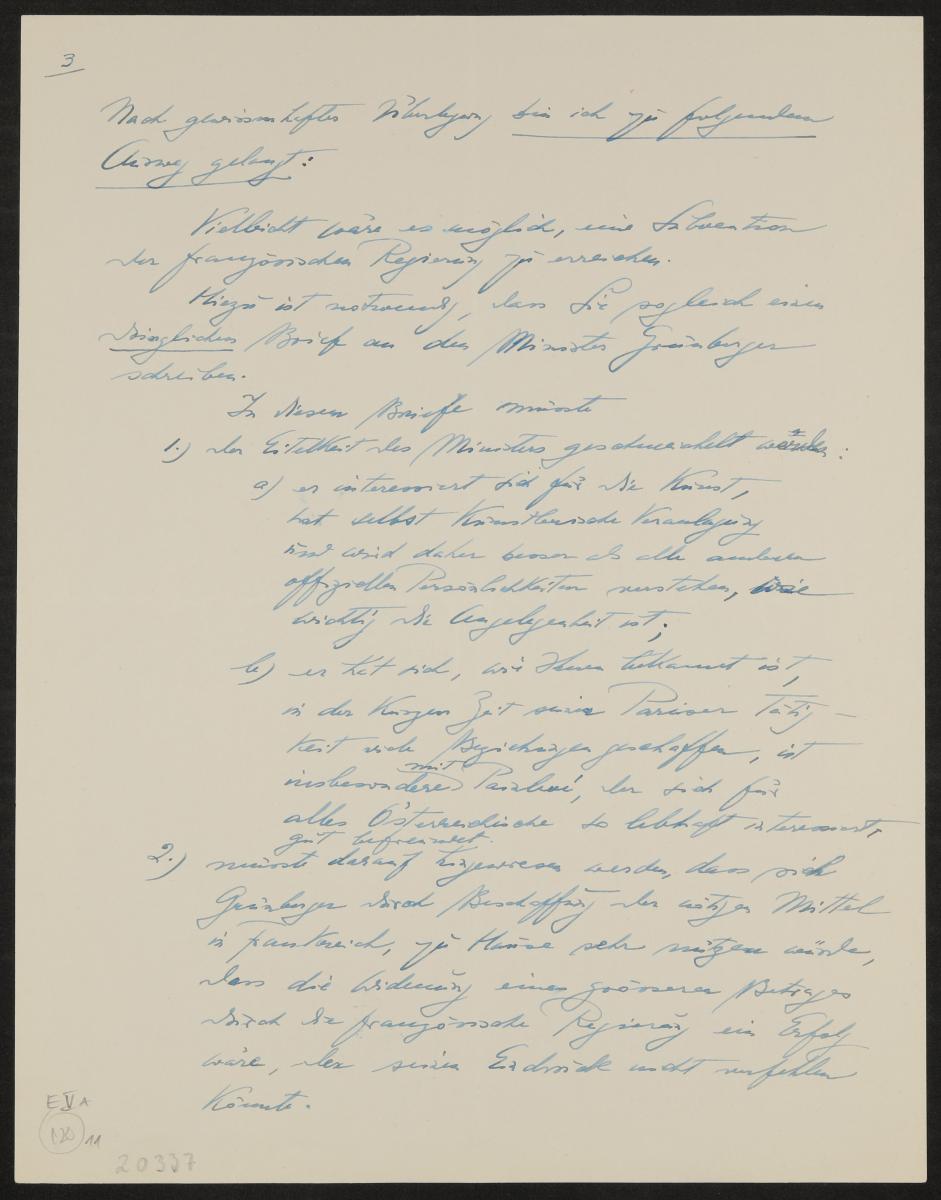 3
Nach gewissenhafter Überlegung bin ich zu folgendem
Ausweg gelangt:
Vielleicht wäre es möglich, eine Subvention
der französischen Regierung zu erreichen.
Hiezu ist notwendig, dass Sie sogleich einen
dringlichen Brief an den Minister Grünberger
schreiben.
In diesem Briefe müsste
1.) der Eitelkeit des Ministers geschmeichelt werden:
a) er interessiert sich für die Kunst,
hat selbst künstlerische Veranlagung
und wird daher besser als alle anderen
offiziellen Persönlichkeiten verstehen, wie
wichtig die Angelegenheit ist;
b) er hat sich, wie Ihnen bekannt ist,
in der kurzen Zeit seiner Pariser Tätig-
keit viele Beziehungen geschaffen, ist
insbesondere mit Painlevé, der sich für
alles Österreichische so lebhaft interessiert,
gut befreundet.
2.) müsste darauf hingewiesen werden, dass sich
Grünberger durch Beschaffung der nötigen Mittel
in Frankreich, zu Hause sehr nützen würde,
dass die Widmung eines grösseren Betrages
durch die französische Regierung ein Erfolg
wäre, der seinen Eindruck nicht verfehlen
könnte.
E V A
120 11
20337